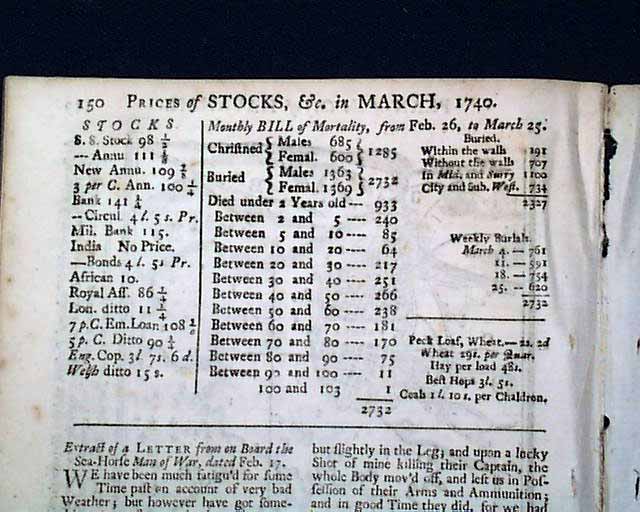 150 PRICES of STOCKS, &c. in MARCH, 1740.
STOCKS
S. S. Stock 98 1/2
— Annu 111 1/8
New Annu. 109 3/8
3 per C. Ann. 100 1/4
Bank 141 3/4
— Circul. 4 l. 5 s. Pr.
Mil. Bank 115.
India No Price.
— Bonds 4 l. 5 s Pr.
African 10.
Royal Ass. 86 1/4
Lon. ditto 11 1/4
7 p. C. Em. Loan 108
5 p. C. Ditto 90 1/4
Eng. Cop. 3 l. 7 s. 6 d.
Welsh ditto 15 s.
Monthly BILL of Mortality, from Feb. 26, to March 25.
Christned { Males 685 } 1285
Femal. 600
Buried { Males 1363 } 2732
Femal. 1369
Died under 2 Years old — 933
Between 2 and 5 ---- 240
Between 5 and 10 ---- 85
Between 10 and 20 ---- 64
Between 20 and 30 ---- 217
Between 30 and 40 ---- 251
Between 40 and 50 ---- 266
Between 50 and 60 ---- 238
Between 60 and 70 ---- 181
Between 70 and 80 ---- 170
Between 80 and 90 ---- 75
Between 90 and 100 ---- 11
100 and 103 1
2732
Buried.
Within the walls 191
Without the walls 707
In Mid. and Surry 1100
City and Sub. West. 734
2327
Weekly Burials.
March 4. — 761
11. — 591
18. — 754
25. — 620
2732
Peck Loaf, Wheat. — 2s. 2d
Wheat 29s. per Quar.
Hay per load 48s.
Best Hops 3 l. 5 s.
Coals 1 l. 10 s. per Chaldron.
Extract of a LETTER from on Board the
Sea-Horse Man of War, dated Feb. 17.
WE have been much fatigu'd for some
Time past on account of very bad
Weather; but however have got some-
but slightly in the Leg; and upon a lucky
Shot of mine killing their Captain, the
whole Body mov'd off, and left us in Pos-
session of their Arms and Ammunition;
and in good Time they did, for we had